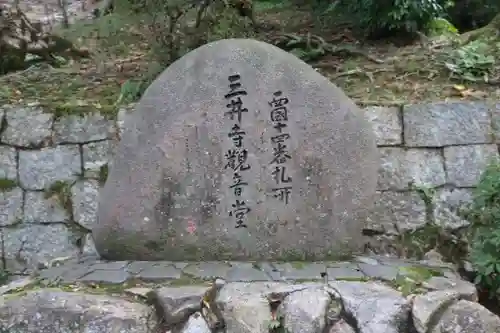 西國十四番札所
三井寺觀音堂